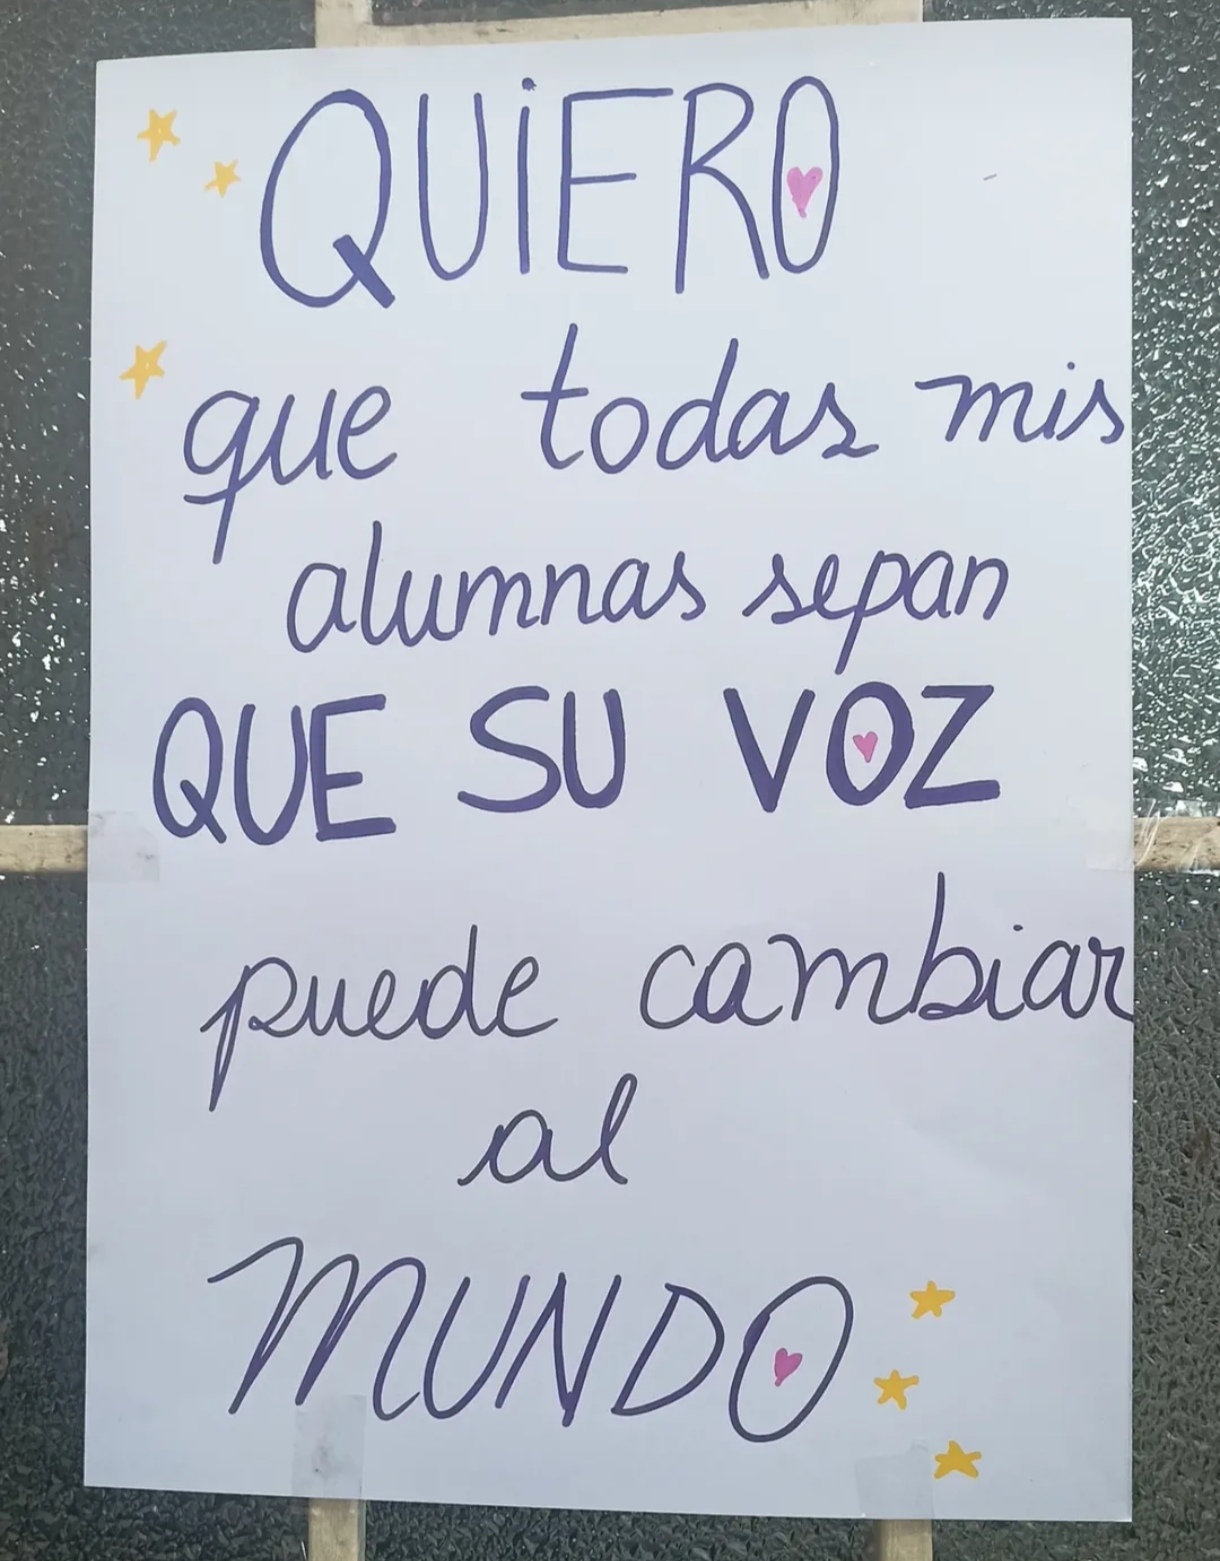 QUiERO
que todas mis
alumnas sepan
QUE SU VOZ
puede cambiar
al
MUNDO